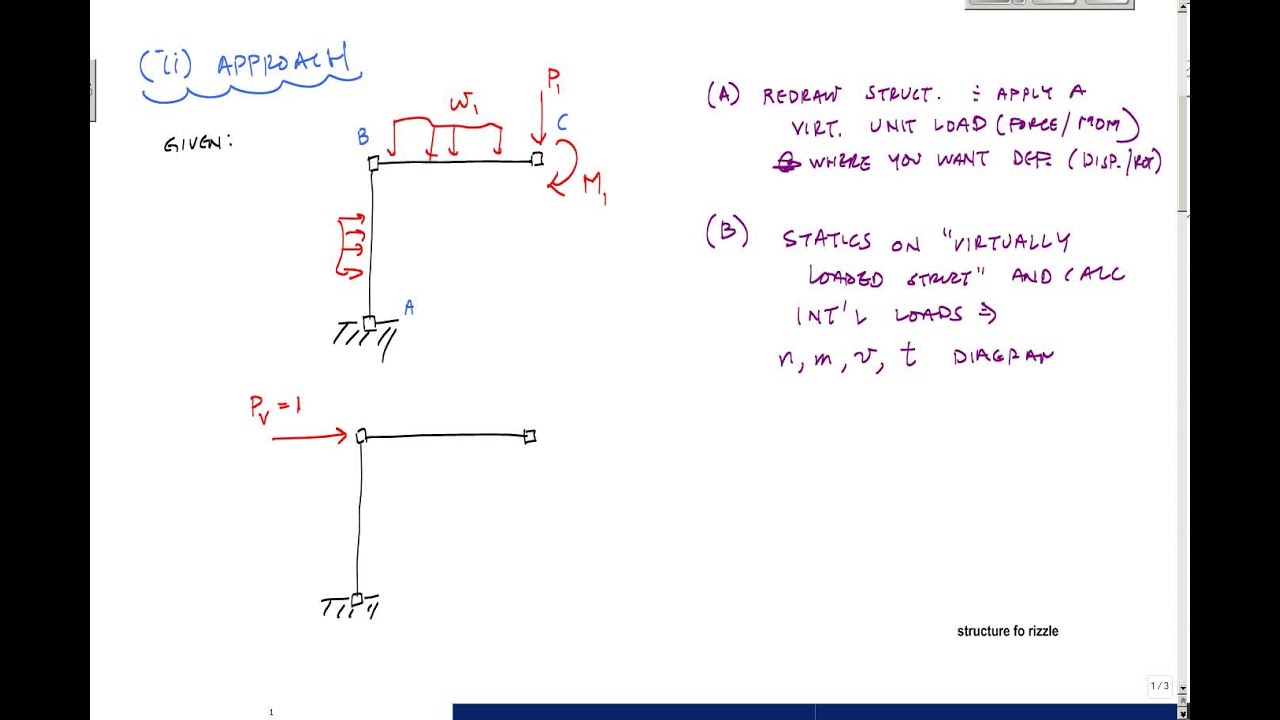 (ii) APPROACH
GIVEN:
B
w₁
P₁
C
M₁
A
Pᵥ = 1
(A) REDRAW STRUCT. & APPLY A
VIRT. UNIT LOAD (FORCE/MOM)
WHERE YOU WANT DEF. (DISP./ROT)
(B) STATICS ON "VIRTUALLY
LOADED STRUCT" AND CALC
INT'L LOADS ⇒
n, m, v, t DIAGRAM
structure fo rizzle
1 / 3
1